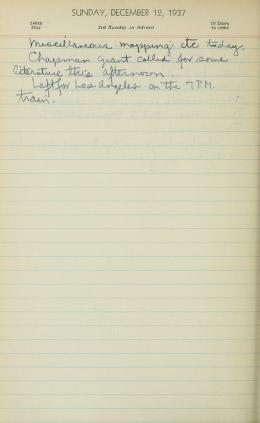 SUNDAY, DECEMBER 12, 1937
346th Day
3rd Sunday in Advent
19 Days to come
Miscellaneous mapping etc today.
Chapman Grant called for some
literature this afternoon.
Left for Los Angeles on the 7 P.M.
train.